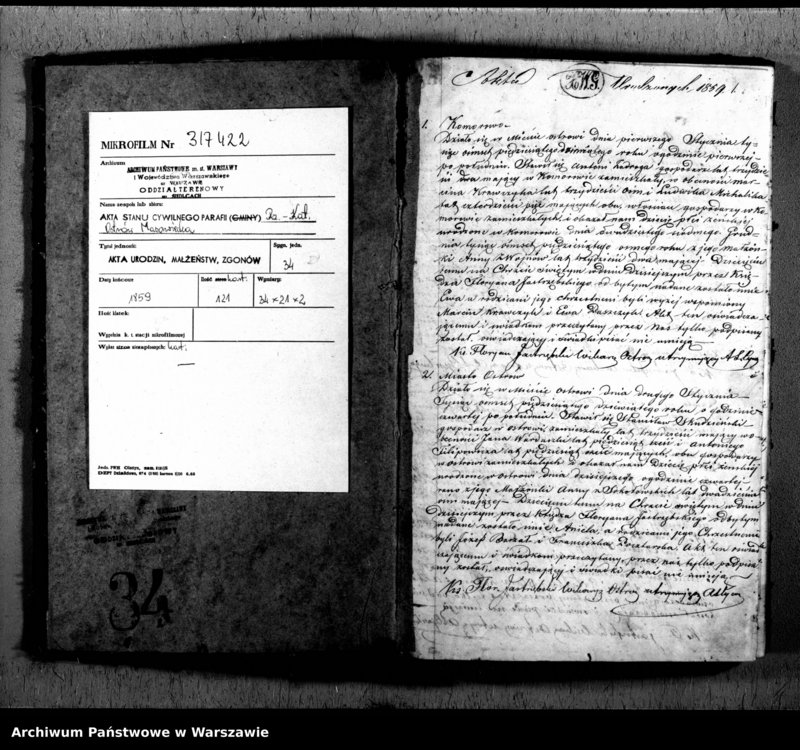 MIKROFILM Nr 317422
Archiwum
ARCHIWUM PAŃSTWOWE m. st. WARSZAWY
i Województwa Warszawskiego
w WARSZAWIE
ODDZIAŁ TERENOWY
w SIEDLCACH
Nazwa zespołu lub zbioru:
AKTA STANU CYWILNEGO PARAFII (GMINY) Rz.-Kat.
Ostrów Mazowiecka
Tytuł jednostki:
AKTA URODZIN, MAŁŻEŃSTW, ZGONÓW
Sygn. jedn.
34
Daty końcowe
1859
Ilość stron kart.
121
Wymiary:
34 × 21 × 2
Ilość klatek:
Wykaz stron nienapisanych: kart.
—
34
Akta Urodzonych 1859. 1.
1. Komorowo
Działo się w Mieście Ostrowi dnia pierwszego Stycznia ty-
siąc ośmset pięćdziesiątego dziewiątego roku o godzinie pierwszej
po południu. Stawił się Antoni gospodarz lat trzydzie-
ści dwa mający w Komorowie zamieszkały, w obecności Mar-
cina Krawczyka lat trzydzieści ośm i Ludwika Michalika
lat czterdzieści pięć mających, obu włościan gospodarzy w Ko-
morowie zamieszkałych i okazał nam dziecię płci żeńskiej
urodzone w Komorowie dnia dwudziestego siódmego Grud-
nia tysiąc ośmset pięćdziesiątego ósmego roku z jego Małżon-
ki Anny z Wojnów lat trzydzieści dwa mającej. Dziecięciu
temu na Chrzcie świętym w dniu dzisiejszym przez Księ-
dza Floryana Jastrzębskiego odbytym nadane zostało imie
Ewa a rodzicami jego chrzestnemi byli wyżej wspomniony
Marcin Krawczyk i Ewa Akt ten oświadcza-
jącemu i świadkom przeczytany przez Nas tylko podpisany
został, oświadczający i świadki pisać nie umieją.
Xiądz Floryan Jastrzębski Wikary Ostrow. utrzymujący Akta
2. Miasto Ostrow
Działo się w Mieście Ostrowi dnia drugiego Stycznia
Tysiąc ośmset pięćdziesiątego dziewiątego roku, o godzinie
czwartej po południu. Stawił się Stanisław
gospodarz w Ostrowi zamieszkały lat trzydzieści mający w o-
becności Jana lat pięćdziesiąt sześć i Antoniego
Filipowicza lat pięćdziesiąt sześć mających, obu gospodarzy
w Ostrowi zamieszkałych i okazał nam Dziecię płci żeńskiej
urodzone w Ostrowi dnia dzisiejszego o godzinie czwartej
rano z jego Małżonki Anny z Sokołowskich lat dwadzieścia
ośm mającej. Dziecięciu temu na Chrzcie świętym w dniu
dzisiejszym przez Księdza Floryana Jastrzębskiego odbytym
nadane zostało imie Aniela, a rodzicami jego Chrzestnemi
byli Józef i Franciszka Akt ten oświad-
czającemu i świadkom przeczytany, przez nas tylko podpisa-
ny został, oświadczający i świadki pisać nie umieją.
Xiądz Flor. Jastrzębski Wikary Ostrow. utrzymujący Akta
Archiwum Państwowe w Warszawie